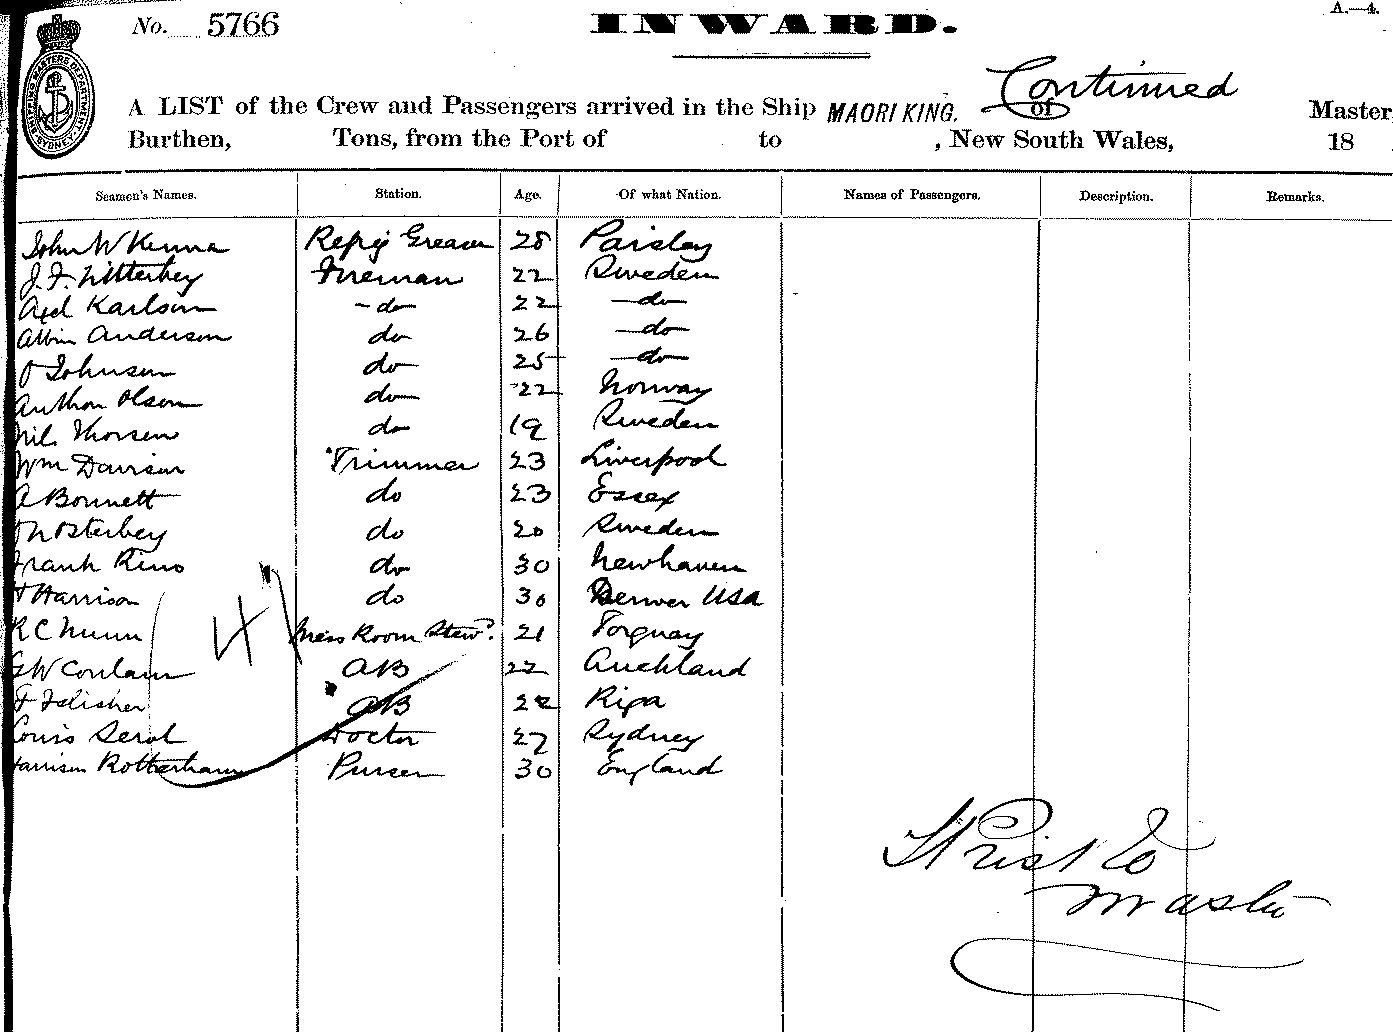 No. 5766
INWARD.
A.—4.
SHIPPING MASTERS DEPARTMENT SYDNEY
Continued
A LIST of the Crew and Passengers arrived in the Ship MAORI KING. of Master,
Burthen, Tons, from the Port of to , New South Wales, 18
Seamen's Names. Station. Age. Of what Nation. Names of Passengers. Description. Remarks.
John W Kenna Refrig Greaser 28 Paisley
J. F. Fireman 22 Sweden
Axel Karlson do 22 do
Albin Anderson do 26 do
O Johnson do 25 do
Anthon Olson do 22 Norway
Nil Thorsen do 19 Sweden
Wm Davison Trimmer 23 Liverpool
A Bonnett do 23 Essex
Osterbey do 20 Sweden
Frank do 30 Newhaven
H Harrison do 30 Denver USA
R C Nunn Mess Room Stewd 21 Torquay
G W AB 22 Auckland
F Felisher AB 22 Riga
Louis Doctor 27 Sydney
Harrison Rotherham Purser 30 England
Master